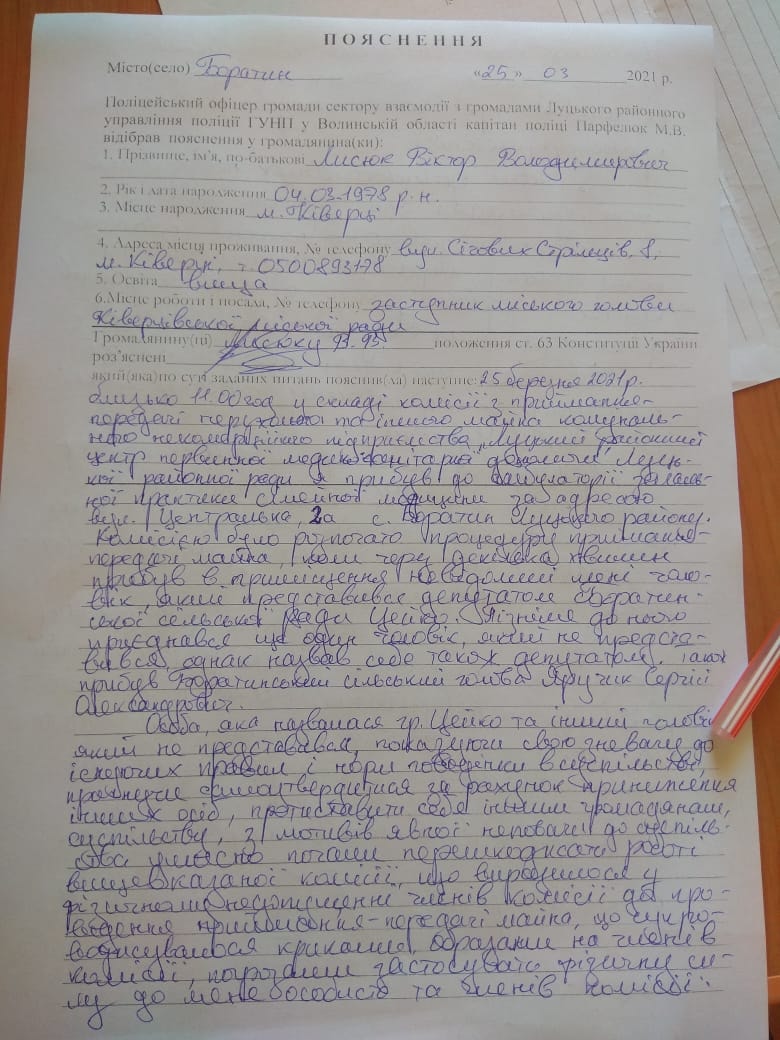 ПОЯСНЕННЯ
Місто(село) Боратин «25» 03 2021 р.
Поліцейський офіцер громади сектору взаємодії з громадами Луцького районного
управління поліції ГУНП у Волинській області капітан поліції Парфелюк М.В.
відібрав пояснення у громадянина(ки):
1. Прізвище, ім'я, по-батькові Лисюк Віктор Володимирович
2. Рік і дата народження 04.03.1978 р.н.
3. Місце народження м. Ківерці
4. Адреса місця проживання, № телефону вул. Січових Стрільців, 8,
м. Ківерці, т. 0500893178
5. Освіта вища
6.Місце роботи і посада, № телефону заступник міського голови
Ківерцівської міської ради
Громадянину(ці) Лисюку В.В. положення ст. 63 Конституції України
роз'яснені
який(яка)по суті заданих питань пояснив(ла) наступне: 25 березня 2021р.
близько 11.00 год у складі комісії з приймання-
передачі нерухомого та іншого майна комуналь-
ного некомерційного підприємства „Луцький районний
центр первинної медико-санітарної допомоги" Луць-
кої районної ради я прибув до амбулаторії загаль-
ної практики сімейної медицини за адресою
вул. Центральна, 2а с. Боратин Луцького району.
Комісією було розпочато процедуру приймання-
передачі майна, коли через декілька хвилин
прибув в приміщення невідомий мені чоло-
вік, який представився депутатом Боратин-
ської сільської ради Цейко. Пізніше до нього
приєднався ще один чоловік, який не предста-
вився, однак назвав себе також депутатом. Також
прибув Боратинський сільський голова Яручик Сергій
Олександрович.
Особа, яка назвалася гр. Цейко та інший чоловік
який не представився, показуючи свою зневагу до
існуючих правил і норм поведінки в суспільстві,
прагнучи самоутвердитися за рахунок приниження
інших осіб, протиставити себе іншим громадянам,
суспільству, з мотивів явної неповаги до суспіль-
ства умисно почали перешкоджати роботі
вищевказаної комісії, що виразилося у
фізичному недопущенні членів комісії до про-
ведення приймання-передачі майна, що супро-
воджувалося криками, образами на членів
комісії, погрозами застосувати фізичну си-
лу до мене особисто та членів комісії.